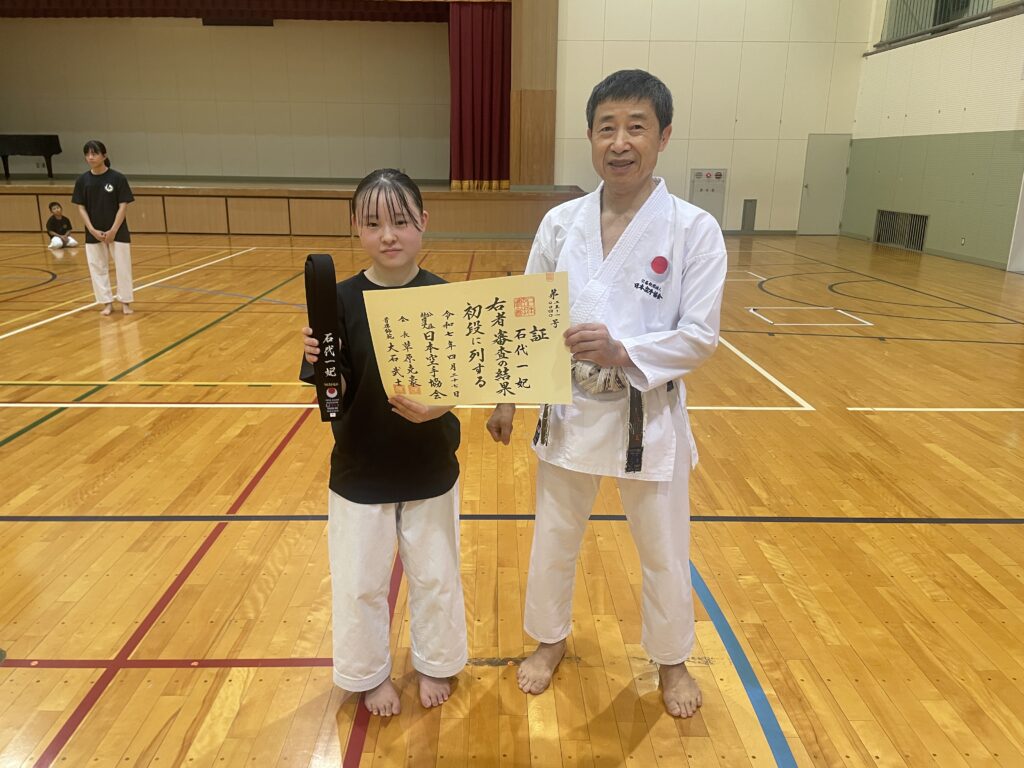 証
石代一妃
右者審査の結果
初段に列する
令和七年四月二十七日
日本空手協会
会長草原克豪
首席師範 大石武士
石代一妃
日本空手協会